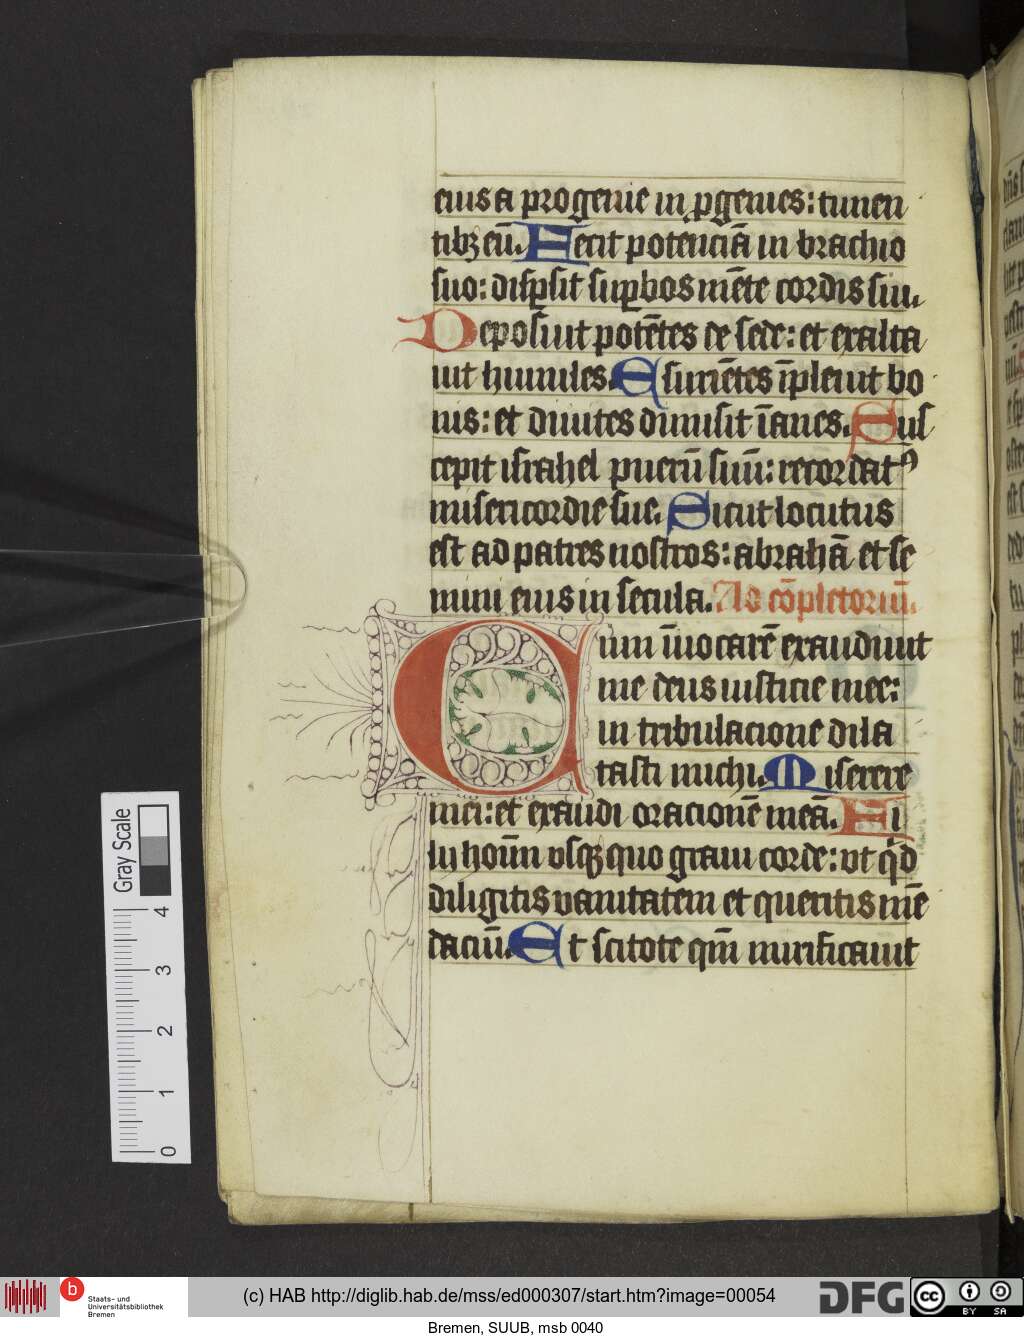 eius a progenie in ꝓgenies: timen
tibꝫ eū. Fecit potenciā in brachio
suo: disꝑsit suꝑbos mēte cordis sui.
Deposuit potētes de sede: et exalta
uit humiles. Esuriētes īpleuit bo
nis: et diuites dimisit īanes. Sus
cepit israhel puerū suū: recordatꝰ
misericordie sue. Sicut locutus
est ad patres nostros: abrahā et se
mini eius in secula. Ad cōpletoriū.
Cum īuocarē exaudiuit
me deus iusticie mee:
in tribulacione dila
tasti michi. Miserere
mei: et exaudi oracionē meā. Fi
lii hoīm vsqꝫ quo graui corde: vt qd
diligitis vanitatem et queritis mē
daciū. Et scitote qm̄ mirificauit
Gray Scale
0 1 2 3 4
b Staats- und
Universitätsbibliothek
Bremen
(c) HAB http://diglib.hab.de/mss/ed000307/start.htm?image=00054
DFG
cc BY SA
Bremen, SUUB, msb 0040